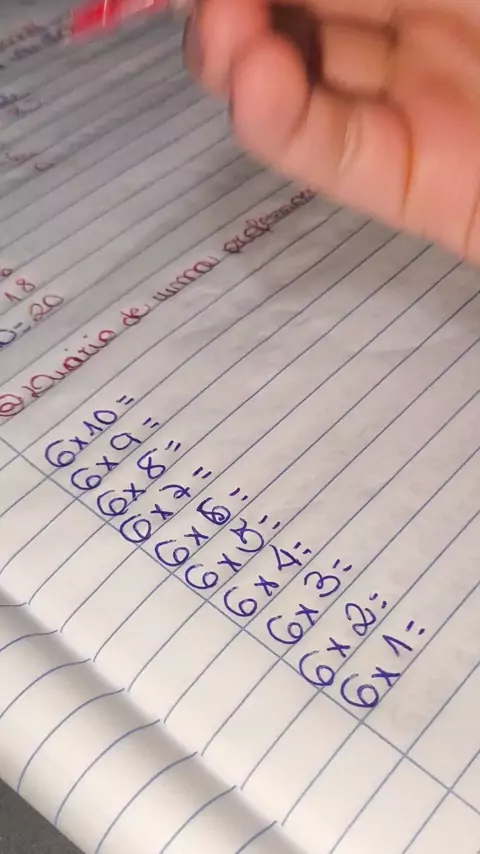 18
0=20
@Diario de uma professora
6x10=
6x9=
6x8=
6x7=
6x6=
6x5=
6x4=
6x3=
6x2=
6x1=